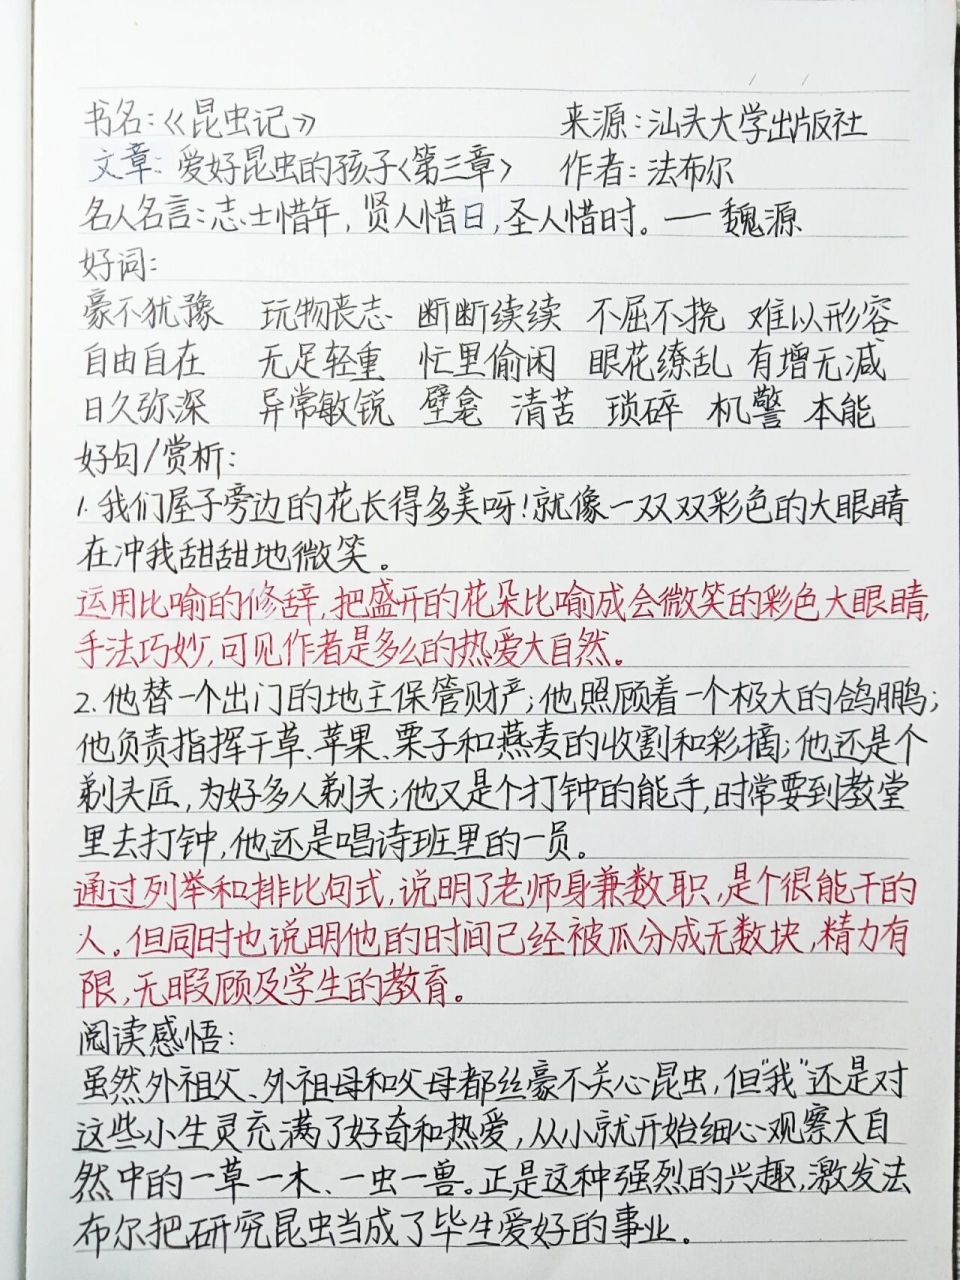 书名:《昆虫记》 来源:汕头大学出版社
文章:爱好昆虫的孩子<第三章> 作者:法布尔
名人名言:志士惜年,贤人惜日,圣人惜时。——魏源
好词:
豪不犹豫 玩物丧志 断断续续 不屈不挠 难以形容
自由自在 无足轻重 忙里偷闲 眼花缭乱 有增无减
日久弥深 异常敏锐 壁龛 清苦 琐碎 机警 本能
好句/赏析:
1.我们屋子旁边的花长得多美呀!就像一双双彩色的大眼睛
在冲我甜甜地微笑。
运用比喻的修辞,把盛开的花朵比喻成会微笑的彩色大眼睛,
手法巧妙,可见作者是多么的热爱大自然。
2.他替一个出门的地主保管财产;他照顾着一个极大的鸽棚;
他负责指挥干草、苹果、栗子和燕麦的收割和彩摘;他还是个
剃头匠,为好多人剃头;他又是个打钟的能手,时常要到教堂
里去打钟,他还是唱诗班里的一员。
通过列举和排比句式,说明了老师身兼数职,是个很能干的
人。但同时也说明他的时间已经被瓜分成无数块,精力有
限,无暇顾及学生的教育。
阅读感悟:
虽然外祖父、外祖母和父母都丝豪不关心昆虫,但"我"还是对
这些小生灵充满了好奇和热爱,从小就开始细心观察大自
然中的一草一木、一虫一兽。正是这种强烈的兴趣,激发法
布尔把研究昆虫当成了毕生爱好的事业。